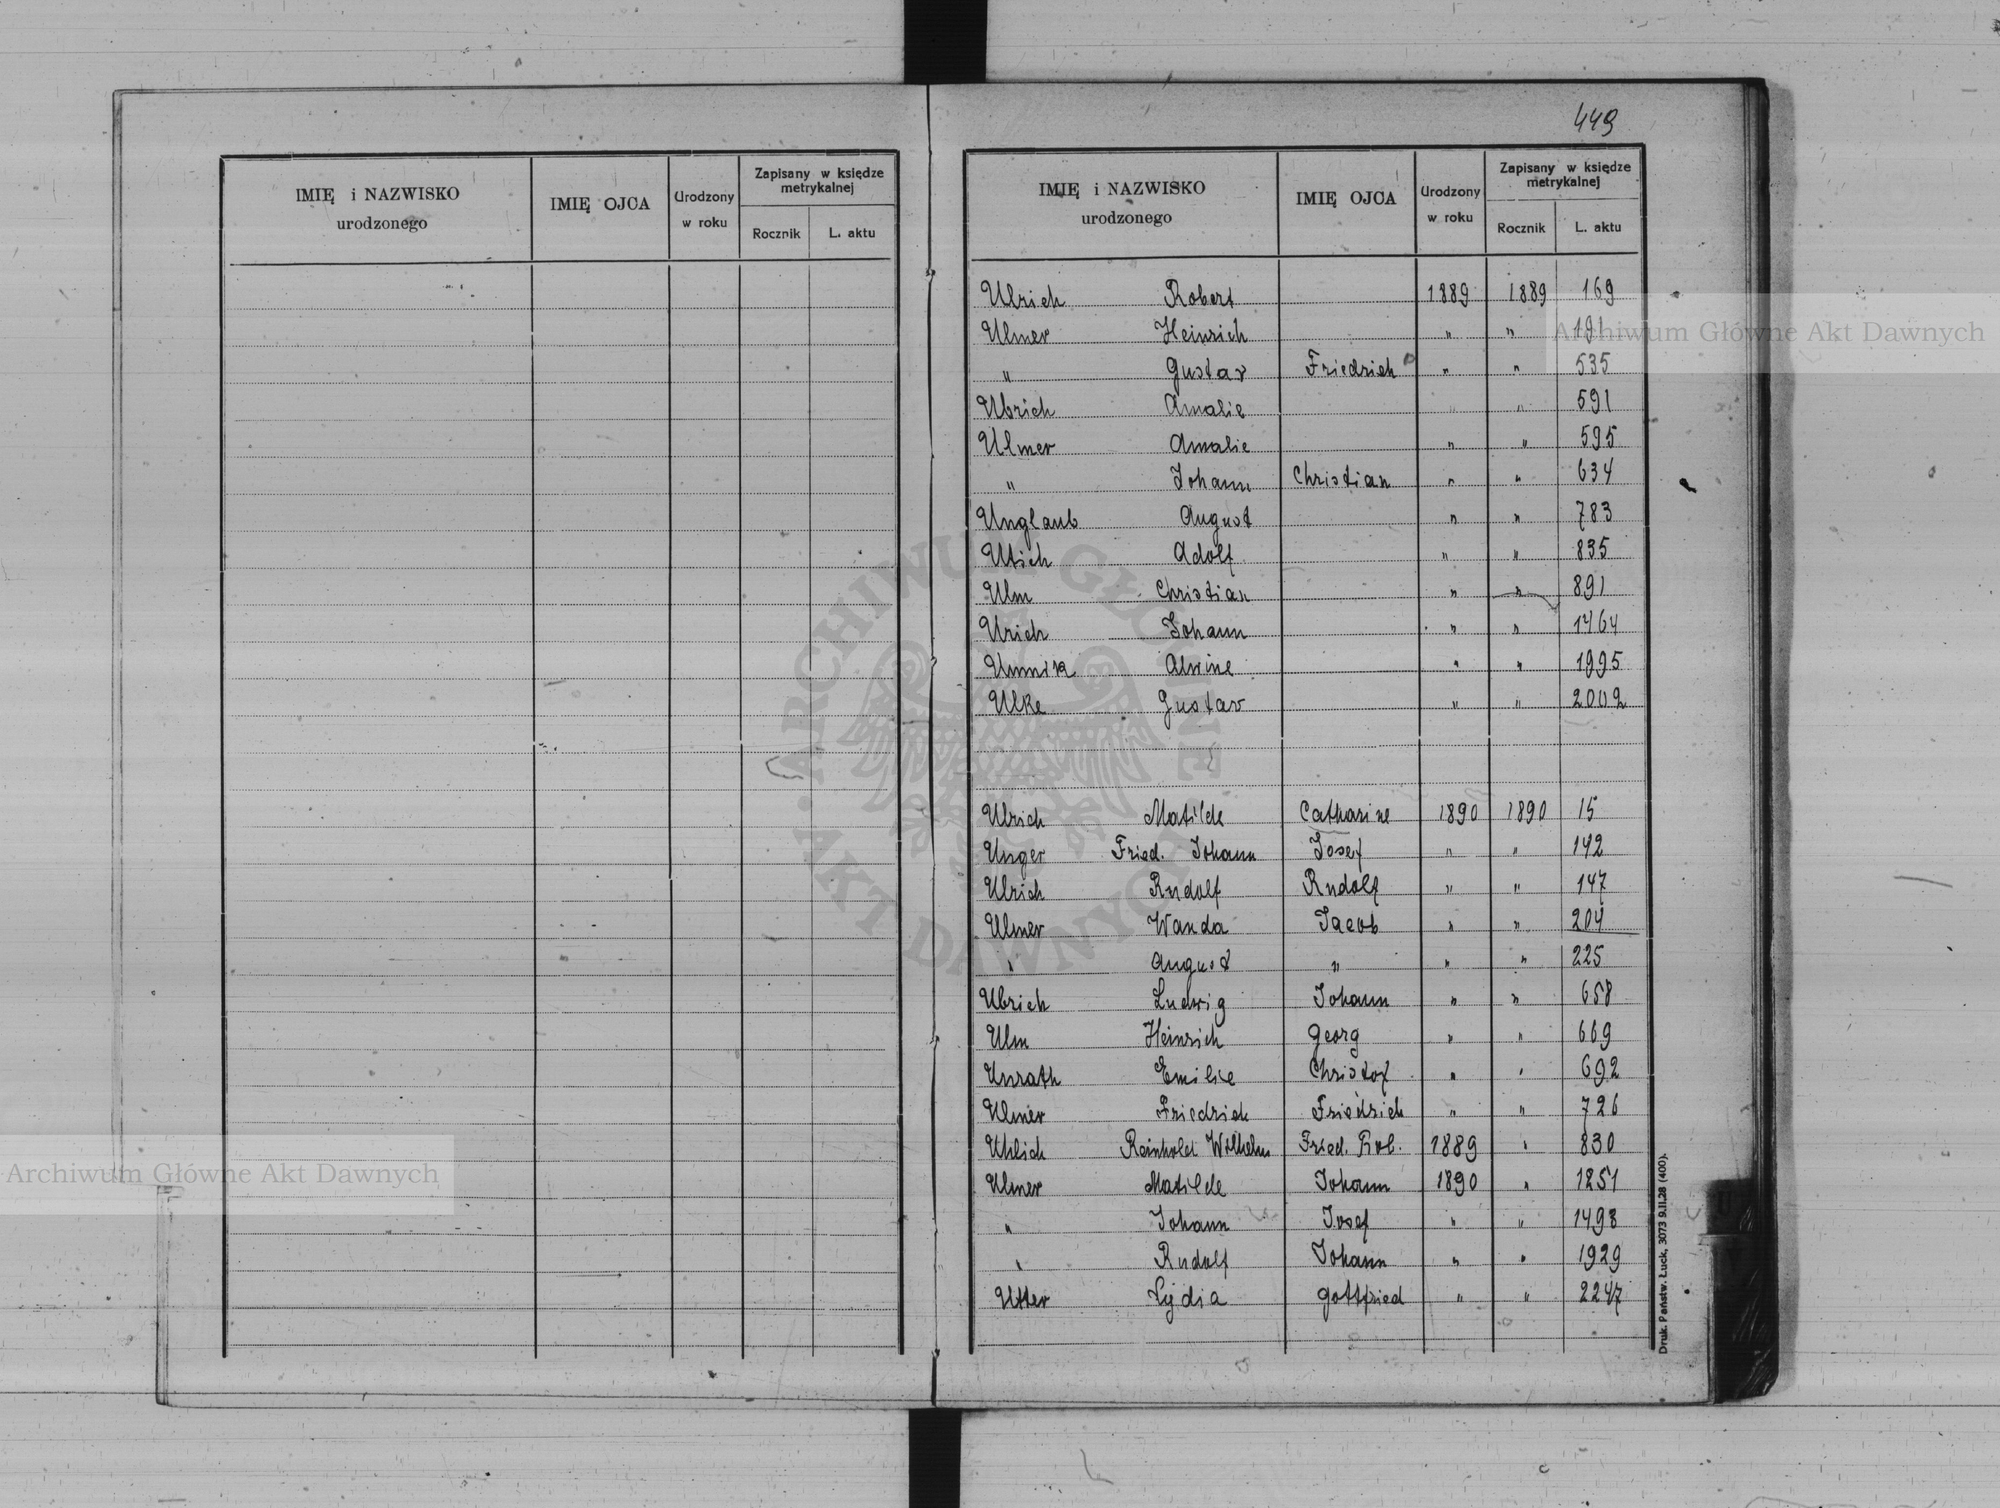 449
IMIĘ i NAZWISKO urodzonego IMIĘ OJCA Urodzony w roku Zapisany w księdze metrykalnej Rocznik L. aktu
IMIĘ i NAZWISKO urodzonego IMIĘ OJCA Urodzony w roku Zapisany w księdze metrykalnej Rocznik L. aktu
Ulrich Robert 1889 1889 169
Ulmer Heinrich " " 191
" Gustav Friedrich " " 535
Ubrich Amalie " " 591
Ulmer Amalie " " 595
" Johann Christian " " 634
Unglaub August " " 783
Utich Adolf " " 835
Ulm Christian " " 891
Urich Johann " " 1764
Alwine " " 1995
Ulke Gustav " " 2002
Ulrich Matilde Catharine 1890 1890 15
Unger Fried. Johann Josef " " 142
Ulrich Rudolf Rudolf " " 147
Ulmer Wanda Jacob " " 204
" August " " " 225
Ubrich Ludwig Johann " " 658
Ulm Heinrich Georg " " 669
Unrath Emilie Christof " " 692
Ulmer Friedrich Friedrich " " 726
Uhlich Reinhold Wilhelm Fried. Rob. 1889 " 830
Ulmer Matilde Johann 1890 " 1251
" Johann Josef " " 1498
" Rudolf Johann " " 1929
Utter Lydia Gottfried " " 2247
Druk. Państw. Łuck, 3073 9.II.28 (400).
Archiwum Główne Akt Dawnych
Archiwum Główne Akt Dawnych
ARCHIWUM GŁÓWNE · AKT DAWNYCH ·